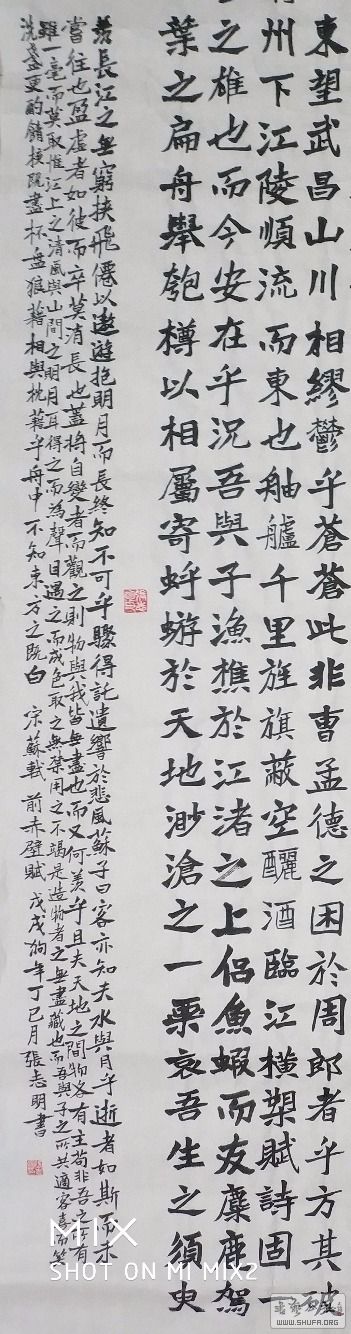 東望武昌山川相繆鬱乎蒼蒼此非曹孟德之困於周郎者乎方其破
州下江陵順流而東也舳艫千里旌旗蔽空釃酒臨江橫槊賦詩固一
之雄也而今安在乎況吾與子漁樵於江渚之上侶魚蝦而友麋鹿駕
葉之扁舟舉匏樽以相屬寄蜉蝣於天地渺滄之一粟哀吾生之須臾
羨長江之無窮挾飛僊以遨遊抱明月而長終知不可乎驟得託遺響於悲風蘇子曰客亦知夫水與月乎逝者如斯而未
嘗往也盈虛者如彼而卒莫消長也蓋將自變者而觀之則物與我皆無盡也而又何羨乎且夫天地之間物各有主苟非吾之所有
雖一毫而莫取惟江上之清風與山間之明月耳得之而為聲目遇之而成色取之無禁用之不竭是造物者之無盡藏也而吾與子之所共適客喜而笑
洗盞更酌餚核既盡杯盤狼藉相與枕藉乎舟中不知東方之既白 宋蘇軾 前赤壁賦 戊戌狗年丁巳月張志明書
MIX
SHOT ON MI MIX2
WWW.SHUFA.ORG